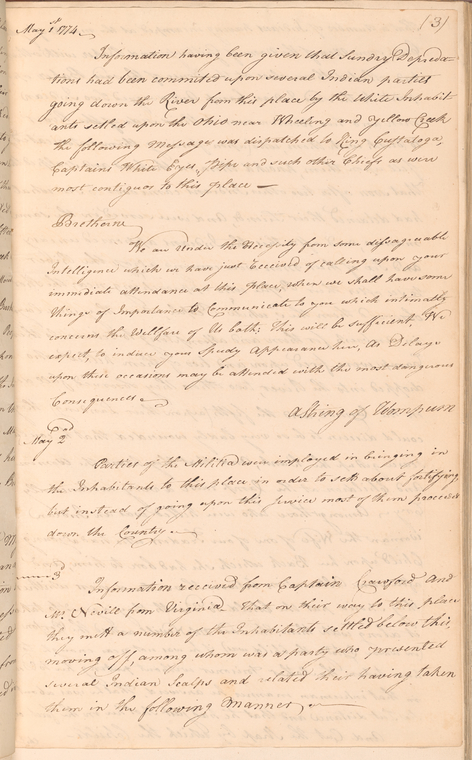 (3)
May 1st 1774
Information having been given that Sundry Depreda-
tions had been commited upon several Indian parties
going down the River from this place by the White Inhabit-
ants settled upon the Ohio near Wheeling and Yellow Creek
the following Message was dispatched to King Custaloga,
Captains White Eyes, Pipe and such other Chiefs as were
most contiguos to this place —
Brethern
We are Under the Necessity from some disagreeable
Intelligence which we have just Received of calling upon your
immediate attendance at this place, when we shall have some
things of Importance to Communicate to you which intimatly
concerns the Wellfare of Us both; This will be sufficient, We
expect, to induce your Speedy Appearance here, as Delays
upon these occasions may be attended with the most dangerous
Consequences
a String of Wompum
May 2nd
Parties of the Militia were imployed in bringing in
the Inhabitants to this place in order to sett about fortifying,
but instead of going upon this Service most of them proceeded
down the Country
3
Information received from Captain Crawford and
Mr. Nevill from Virginia. That on their way to this place
they mett a number of the Inhabitants settled below this,
moving off, among whom was a party who presented
several Indian Scalps and related their having taken
them in the following Manner